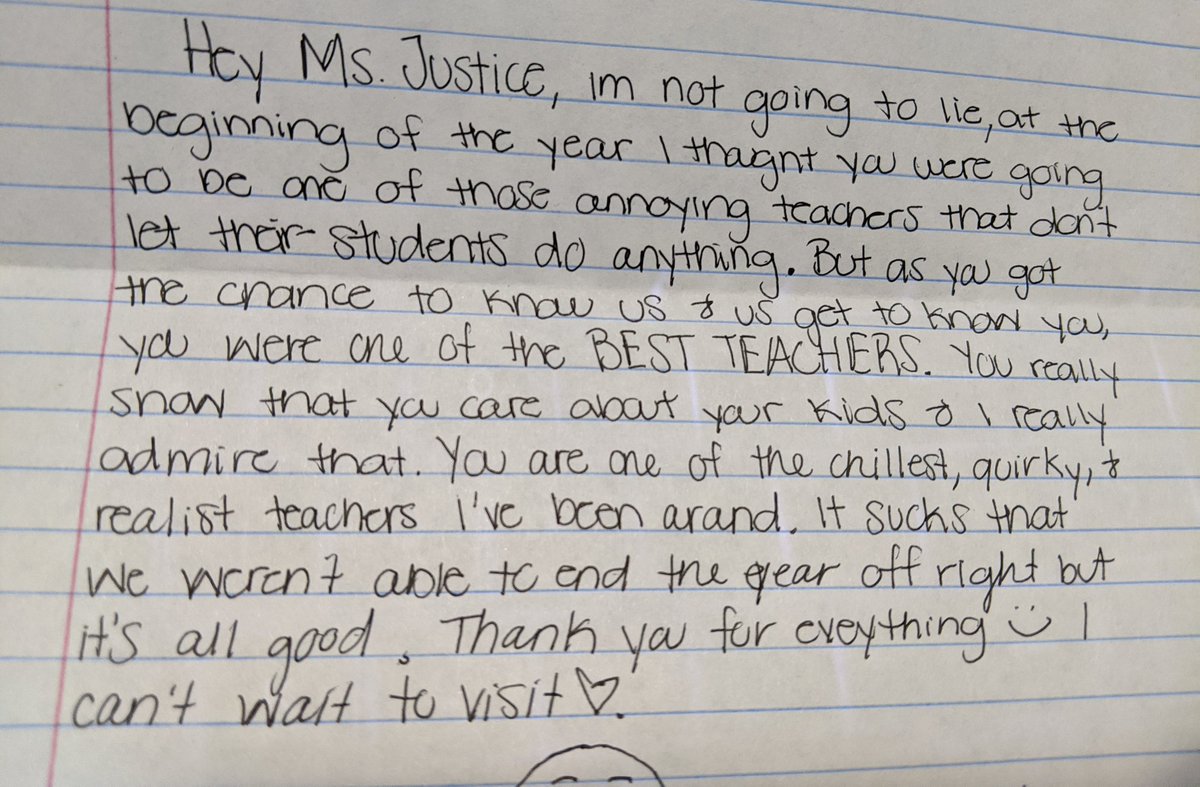 Hey Ms. Justice, im not going to lie, at the
beginning of the year I thought you were going
to be one of those annoying teachers that don't
let their students do anything. But as you got
the chance to know us & us get to know you,
you were one of the BEST TEACHERS. You really
show that you care about your kids & I really
admire that. You are one of the chillest, quirky, &
realist teachers I've been around. It sucks that
we weren't able to end the year off right but
it's all good. Thank you for eveything :) I
can't wait to visit ♡.